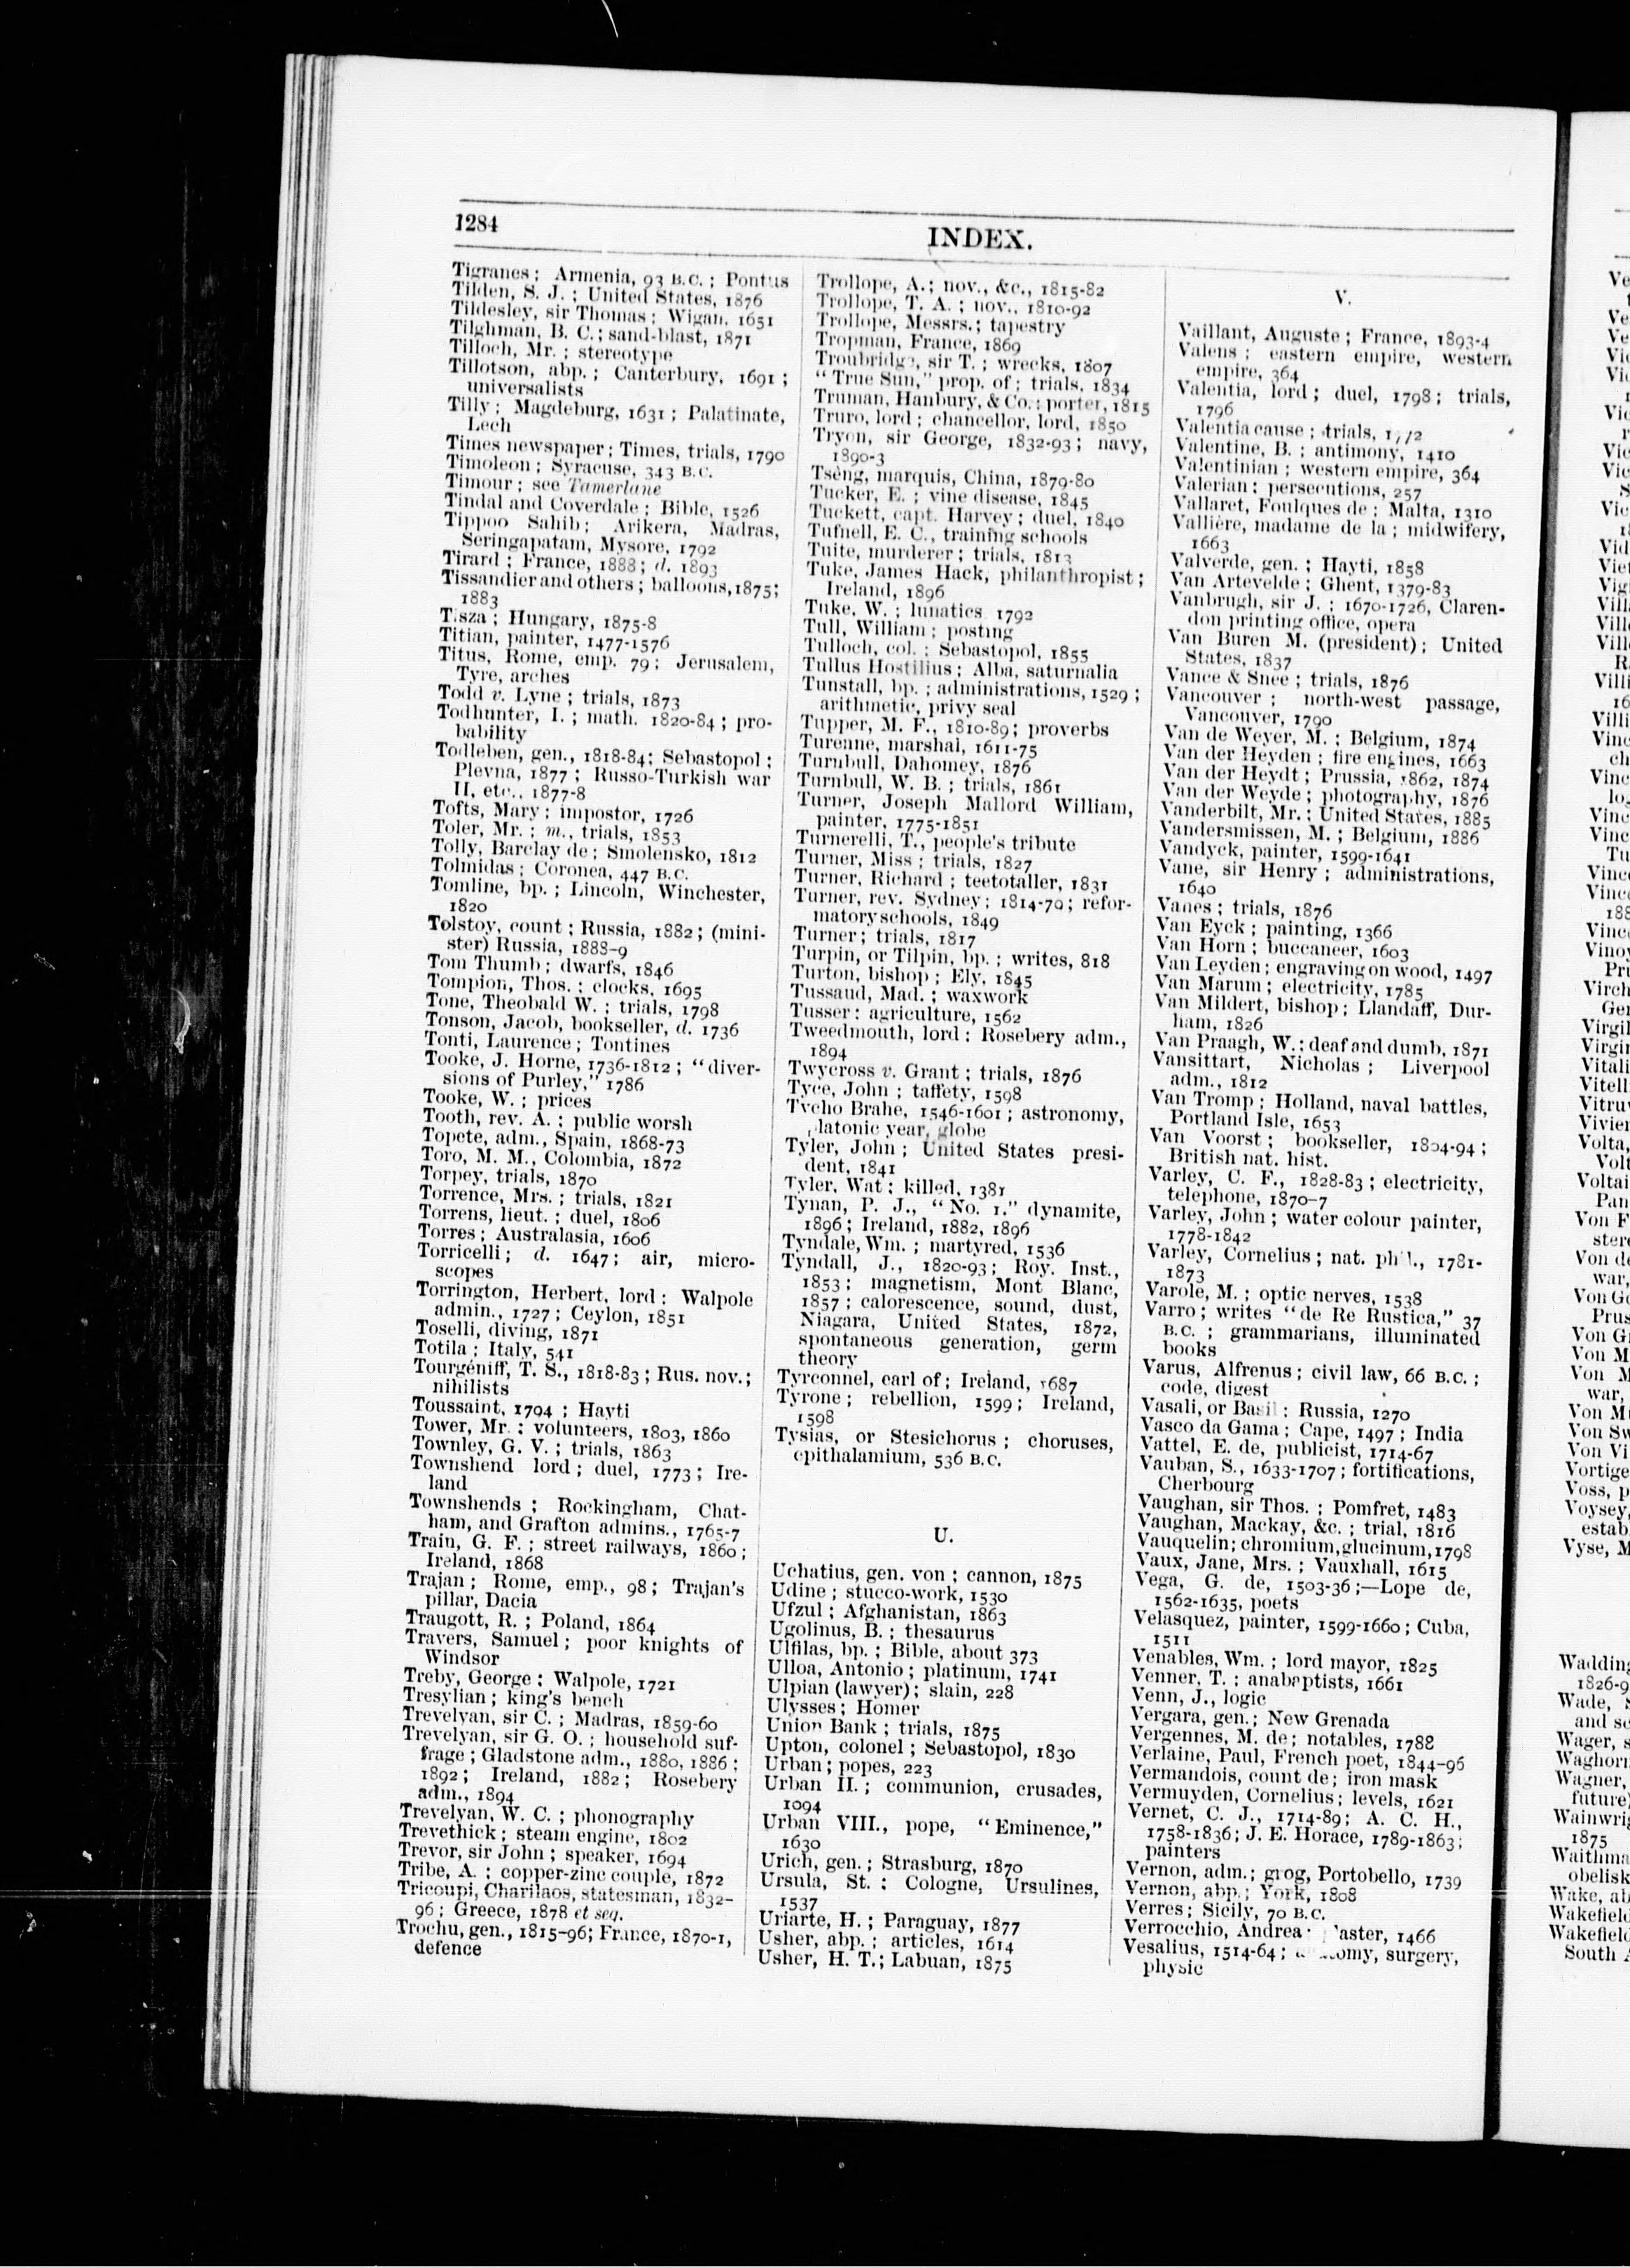 1284
INDEX.
Tigranes; Armenia, 93 B.C.; Pontus
Tilden, S. J.; United States, 1876
Tildesley, sir Thomas; Wigan, 1651
Tilghman, B. C.; sand-blast, 1871
Tilloch, Mr.; stereotype
Tillotson, abp.; Canterbury, 1691;
universalists
Tilly; Magdeburg, 1631; Palatinate,
Lech
Times newspaper; Times, trials, 1790
Timoleon; Syracuse, 343 B.C.
Timour; see Tamerlane
Tindal and Coverdale; Bible, 1526
Tippoo Sahib; Arikera, Madras,
Seringapatam, Mysore, 1792
Tirard; France, 1888; d. 1893
Tissandier and others; balloons, 1875;
1883
Tisza; Hungary, 1875-8
Titian, painter, 1477-1576
Titus, Rome, emp. 79; Jerusalem,
Tyre, arches
Todd v. Lyne; trials, 1873
Todhunter, I.; math. 1820-84; pro-
bability
Todleben, gen., 1818-84; Sebastopol;
Plevna, 1877; Russo-Turkish war
II, etc., 1877-8
Tofts, Mary; impostor, 1726
Toler, Mr.; m., trials, 1853
Tolly, Barclay de; Smolensko, 1812
Tolmidas; Coronea, 447 B.C.
Tomline, bp.; Lincoln, Winchester,
1820
Tolstoy, count; Russia, 1882; (mini-
ster) Russia, 1888-9
Tom Thumb; dwarfs, 1846
Tompion, Thos.; clocks, 1695
Tone, Theobald W.; trials, 1798
Tonson, Jacob, bookseller, d. 1736
Tonti, Laurence; Tontines
Tooke, J. Horne, 1736-1812; "diver-
sions of Purley," 1786
Tooke, W.; prices
Tooth, rev. A.; public worsh
Topete, adm., Spain, 1868-73
Toro, M. M., Colombia, 1872
Torpey, trials, 1870
Torrence, Mrs.; trials, 1821
Torrens, lieut.; duel, 1806
Torres; Australasia, 1606
Torricelli; d. 1647; air, micro-
scopes
Torrington, Herbert, lord; Walpole
admin., 1727; Ceylon, 1851
Toselli, diving, 1871
Totila; Italy, 541
Tourgéniff, T. S., 1818-83; Rus. nov.;
nihilists
Toussaint, 1794; Hayti
Tower, Mr.; volunteers, 1803, 1860
Townley, G. V.; trials, 1863
Townshend lord; duel, 1773; Ire-
land
Townshends; Rockingham, Chat-
ham, and Grafton admins., 1765-7
Train, G. F.; street railways, 1860;
Ireland, 1868
Trajan; Rome, emp., 98; Trajan's
pillar, Dacia
Traugott, R.; Poland, 1864
Travers, Samuel; poor knights of
Windsor
Treby, George; Walpole, 1721
Tresylian; king's bench
Trevelyan, sir C.; Madras, 1859-60
Trevelyan, sir G. O.; household suf-
frage; Gladstone adm., 1880, 1886;
1892; Ireland, 1882; Rosebery
adm., 1894
Trevelyan, W. C.; phonography
Trevethick; steam engine, 1802
Trevor, sir John; speaker, 1694
Tribe, A.; copper-zinc couple, 1872
Tricoupi, Charilaos, statesman, 1832-
96; Greece, 1878 et seq.
Trochu, gen., 1815-96; France, 1870-1,
defence
Trollope, A.; nov., &c., 1815-82
Trollope, T. A.; nov., 1810-92
Trollope, Messrs.; tapestry
Tropman, France, 1869
Troubridge, sir T.; wrecks, 1807
"True Sun," prop. of; trials, 1834
Truman, Hanbury, & Co.; porter, 1815
Truro, lord; chancellor, lord, 1850
Tryon, sir George, 1832-93; navy,
1890-3
Tsêng, marquis, China, 1879-80
Tucker, E.; vine disease, 1845
Tuckett, capt. Harvey; duel, 1840
Tufnell, E. C., training schools
Tuite, murderer; trials, 1813
Tuke, James Hack, philanthropist;
Ireland, 1896
Tuke, W.; lunatics 1792
Tull, William; posting
Tulloch, col.; Sebastopol, 1855
Tullus Hostilius; Alba, saturnalia
Tunstall, bp.; administrations, 1529;
arithmetic, privy seal
Tupper, M. F., 1810-89; proverbs
Turenne, marshal, 1611-75
Turnbull, Dahomey, 1876
Turnbull, W. B.; trials, 1861
Turner, Joseph Mallord William,
painter, 1775-1851
Turnerelli, T., people's tribute
Turner, Miss; trials, 1827
Turner, Richard; teetotaller, 1831
Turner, rev. Sydney; 1814-79; refor-
matory schools, 1849
Turner; trials, 1817
Turpin, or Tilpin, bp.; writes, 818
Turton, bishop; Ely, 1845
Tussaud, Mad.; waxwork
Tusser; agriculture, 1562
Tweedmouth, lord; Rosebery adm.,
1894
Twycross v. Grant; trials, 1876
Tyce, John; taffety, 1598
Tycho Brahe, 1546-1601; astronomy,
platonic year, globe
Tyler, John; United States presi-
dent, 1841
Tyler, Wat; killed, 1381
Tynan, P. J., "No. 1." dynamite,
1896; Ireland, 1882, 1896
Tyndale, Wm.; martyred, 1536
Tyndall, J., 1820-93; Roy. Inst.,
1853; magnetism, Mont Blanc,
1857; calorescence, sound, dust,
Niagara, United States, 1872,
spontaneous generation, germ
theory
Tyrconnel, earl of; Ireland, 1687
Tyrone; rebellion, 1599; Ireland,
1598
Tysias, or Stesichorus; choruses,
epithalamium, 536 B.C.
U.
Uchatius, gen. von; cannon, 1875
Udine; stucco-work, 1530
Ufzul; Afghanistan, 1863
Ugolinus, B.; thesaurus
Ulfilas, bp.; Bible, about 373
Ulloa, Antonio; platinum, 1741
Ulpian (lawyer); slain, 228
Ulysses; Homer
Union Bank; trials, 1875
Upton, colonel; Sebastopol, 1830
Urban; popes, 223
Urban II.; communion, crusades,
1094
Urban VIII., pope, "Eminence,"
1630
Urich, gen.; Strasburg, 1870
Ursula, St.; Cologne, Ursulines,
1537
Uriarte, H.; Paraguay, 1877
Usher, abp.; articles, 1614
Usher, H. T.; Labuan, 1875
V.
Vaillant, Auguste; France, 1893-4
Valens; eastern empire, western
empire, 364
Valentia, lord; duel, 1798; trials,
1796
Valentia cause; trials,
Valentine, B.; antimony, 1410
Valentinian; western empire, 364
Valerian; persecutions, 257
Vallaret, Foulques de; Malta, 1310
Vallière, madame de la; midwifery,
1663
Valverde, gen.; Hayti, 1858
Van Artevelde; Ghent, 1379-83
Vanbrugh, sir J.; 1670-1726, Claren-
don printing office, opera
Van Buren M. (president); United
States, 1837
Vance & Snee; trials, 1876
Vancouver; north-west passage,
Vancouver, 1790
Van de Weyer, M.; Belgium, 1874
Van der Heyden; fire engines, 1663
Van der Heydt; Prussia, 1862, 1874
Van der Weyde; photography, 1876
Vanderbilt, Mr.; United States, 1885
Vandersmissen, M.; Belgium, 1886
Vandyck, painter, 1599-1641
Vane, sir Henry; administrations,
1640
Vanes; trials, 1876
Van Eyck; painting, 1366
Van Horn; buccaneer, 1603
Van Leyden; engraving on wood, 1497
Van Marum; electricity, 1785
Van Mildert, bishop; Llandaff, Dur-
ham, 1826
Van Praagh, W.; deaf and dumb, 1871
Vansittart, Nicholas; Liverpool
adm., 1812
Van Tromp; Holland, naval battles,
Portland Isle, 1653
Van Voorst; bookseller, 1804-94;
British nat. hist.
Varley, C. F., 1828-83; electricity,
telephone, 1870-7
Varley, John; water colour painter,
1778-1842
Varley, Cornelius; nat. phil., 1781-
1873
Varole, M.; optic nerves, 1538
Varro; writes "de Re Rustica," 37
B.C.; grammarians, illuminated
books
Varus, Alfrenus; civil law, 66 B.C.;
code, digest
Vasali, or Basil; Russia, 1270
Vasco da Gama; Cape, 1497; India
Vattel, E. de, publicist, 1714-67
Vauban, S., 1633-1707; fortifications,
Cherbourg
Vaughan, sir Thos.; Pomfret, 1483
Vaughan, Mackay, &c.; trial, 1816
Vauquelin; chromium, glucinum, 1798
Vaux, Jane, Mrs.; Vauxhall, 1615
Vega, G. de, 1503-36;—Lope de,
1562-1635, poets
Velasquez, painter, 1599-1660; Cuba,
1511
Venables, Wm.; lord mayor, 1825
Venner, T.; anabaptists, 1661
Venn, J., logic
Vergara, gen.; New Grenada
Vergennes, M. de; notables, 1788
Verlaine, Paul, French poet, 1844-96
Vermandois, count de; iron mask
Vermuyden, Cornelius; levels, 1621
Vernet, C. J., 1714-89; A. C. H.,
1758-1836; J. E. Horace, 1789-1863;
painters
Vernon, adm.; grog, Portobello, 1739
Vernon, abp.; York, 1808
Verres; Sicily, 70 B.C.
Verrocchio, Andrea 1466
Vesalius, 1514-64; surgery,
physic